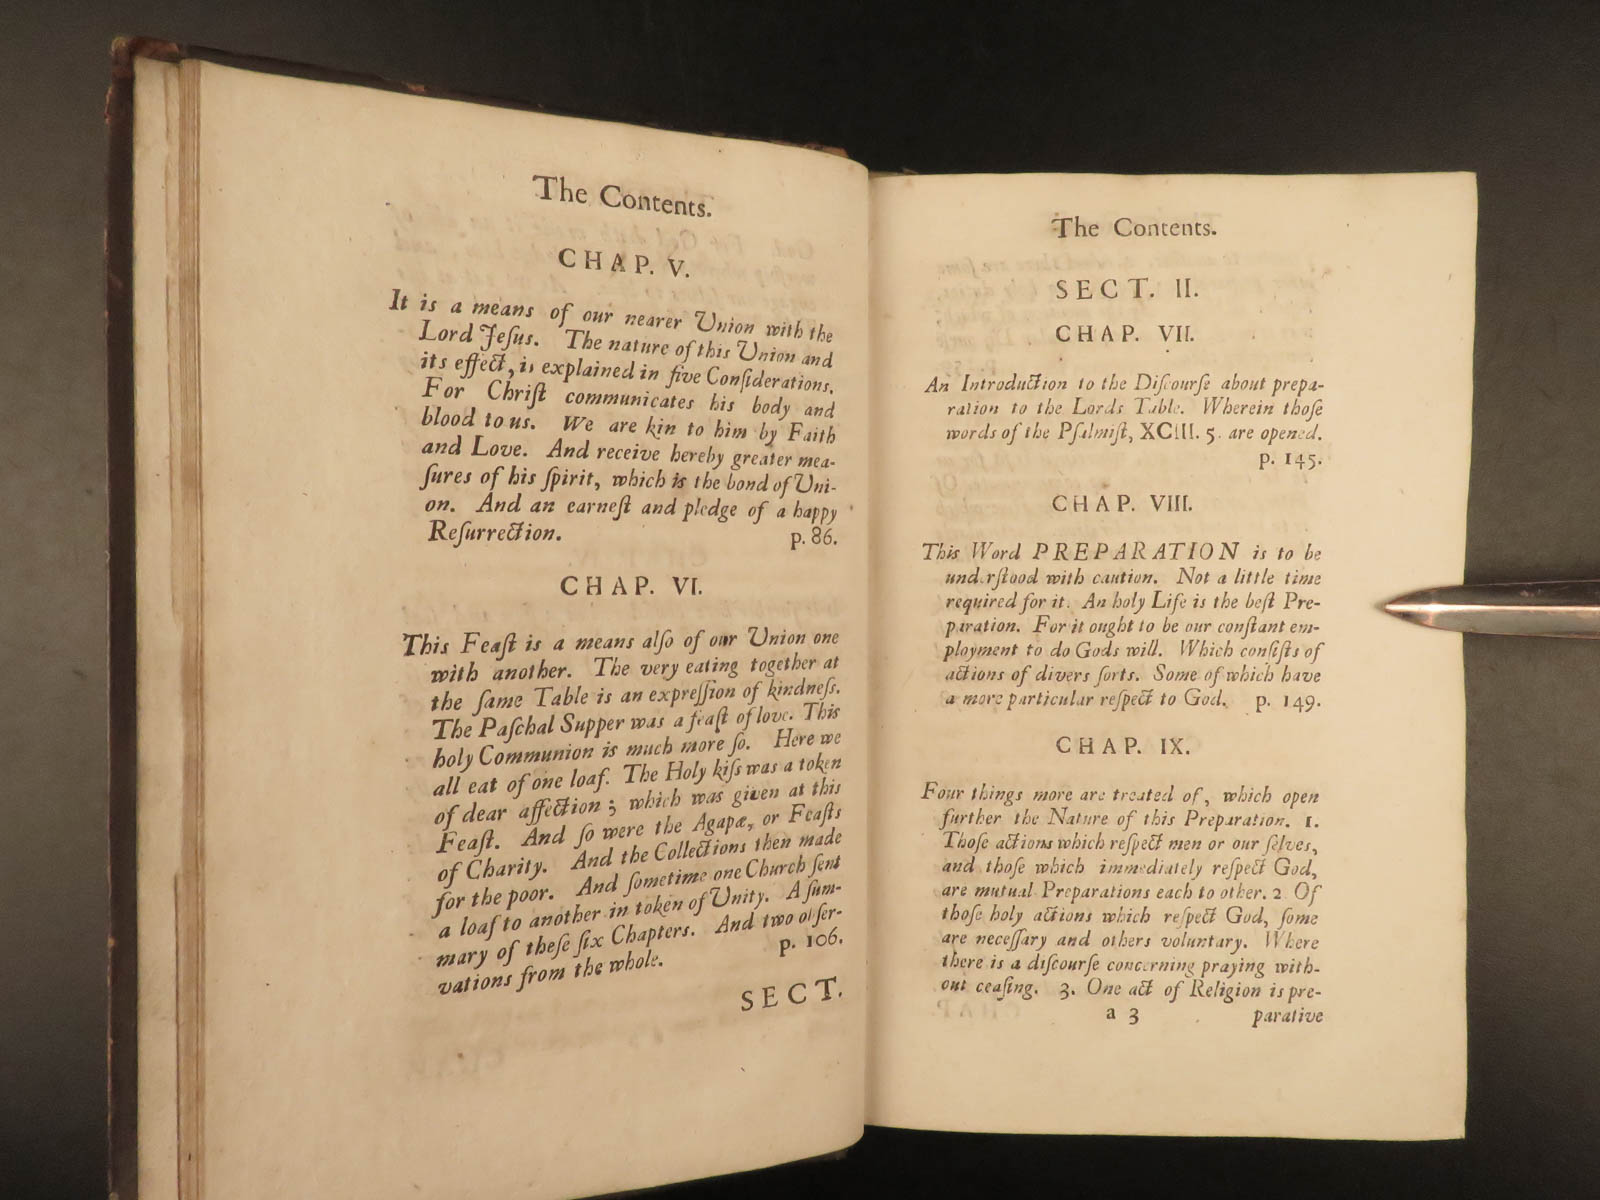 The Contents.
CHAP. V.
It is a means of our nearer Union with the
Lord Jeſus. The nature of this Union and
its effect, is explained in five Conſiderations.
For Chriſt communicates his body and
blood to us. We are kin to him by Faith
and Love. And receive hereby greater mea-
ſures of his ſpirit, which is the bond of Uni-
on. And an earneſt and pledge of a happy
Reſurrection. p. 86.
CHAP. VI.
This Feaſt is a means alſo of our Union one
with another. The very eating together at
the ſame Table is an expreſſion of kindneſs.
The Paſchal Supper was a feaſt of love. This
holy Communion is much more ſo. Here we
all eat of one loaf. The Holy kiſs was a token
of dear affection; which was given at this
Feaſt. And ſo were the Agapæ, or Feaſts
of Charity. And the Collections then made
for the poor. And ſometime one Church ſent
a loaf to another in token of Unity. A ſum-
mary of theſe ſix Chapters. And two obſer-
vations from the whole. p. 106.
SECT.
The Contents.
SECT. II.
CHAP. VII.
An Introduction to the Diſcourſe about prepa-
ration to the Lords Table. Wherein thoſe
words of the Pſalmiſt, XCIII. 5. are opened.
p. 145.
CHAP. VIII.
This Word PREPARATION is to be
underſtood with caution. Not a little time
required for it. An holy Life is the beſt Pre-
paration. For it ought to be our conſtant em-
ployment to do Gods will. Which conſiſts of
actions of divers ſorts. Some of which have
a more particular reſpect to God. p. 149.
CHAP. IX.
Four things more are treated of, which open
further the Nature of this Preparation. 1.
Thoſe actions which reſpect men or our ſelves,
and thoſe which immediately reſpect God,
are mutual Preparations each to other. 2 Of
thoſe holy actions which reſpect God, ſome
are neceſſary and others voluntary. Where
there is a diſcourſe concerning praying with-
out ceaſing. 3. One act of Religion is pre-
a 3 parative